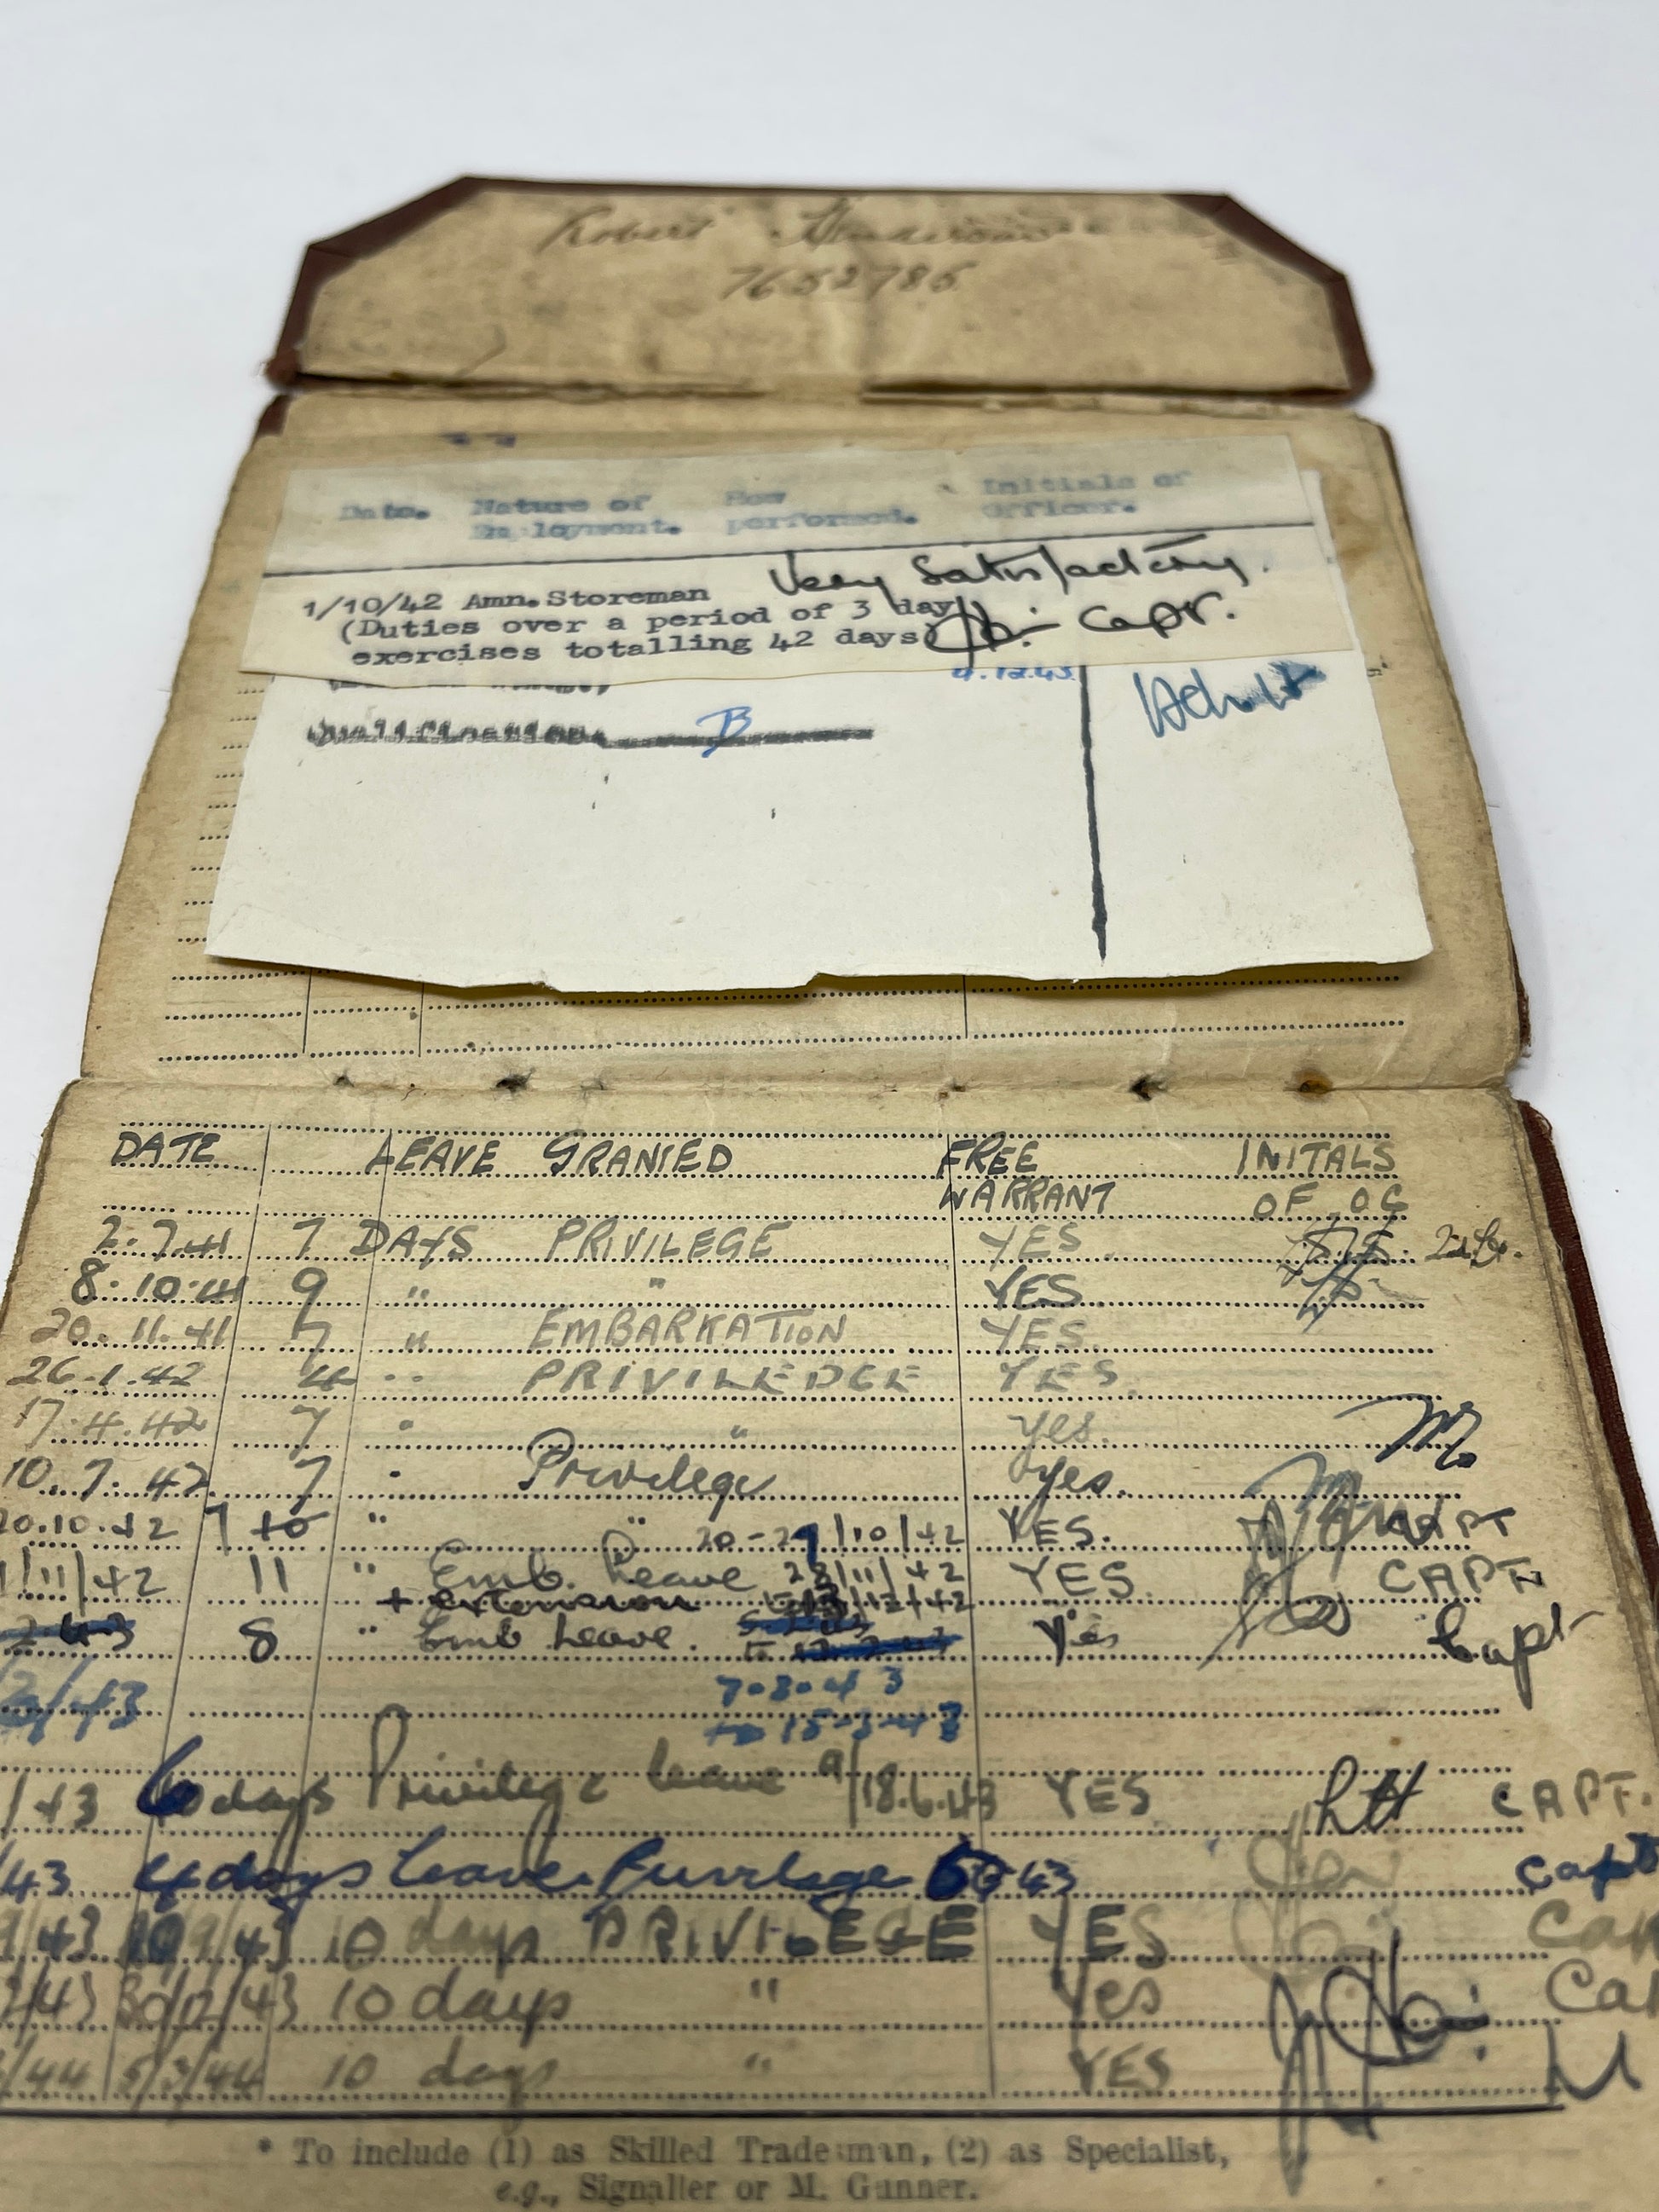 Robert Henderson
7652786
Date. Nature of Employment. How performed. Initials of Officer.
Very Satisfactory.
1/10/42 Amn. Storeman
(Duties over a period of 3 day
exercises totalling 42 days Capt.
4.12.43
Qualification B
DATE LEAVE GRANTED FREE WARRANT INITALS OF OC
2.7.41 7 DAYS PRIVILEGE YES
8.10.41 9 " " YES
20.11.41 7 " EMBARKATION YES
26.1.42 4 " PRIVILEDGE YES
17.4.42 7 " " Yes.
10.7.42 7 " Privilege Yes.
20.10.42 7 " " 20-29/10/42 YES. CAPT
1/11/42 11 " Emb. Leave 28/11/42 YES. CAPT
+ extension /12/42
2 43 8 " Emb Leave. Yes Capt
/43 7.3.43
to 15-3-43
/43 days Privilege leave 9/18.6.43 YES CAPT.
/43 4 days Leave Purrlege 43 Capt
9/43 9/43 10 days PRIVILEGE YES
/43 30/12/43 10 days " Yes
3/44 5/3/44 10 days " YES
* To include (1) as Skilled Tradesman, (2) as Specialist,
e.g., Signaller or M. Gunner.